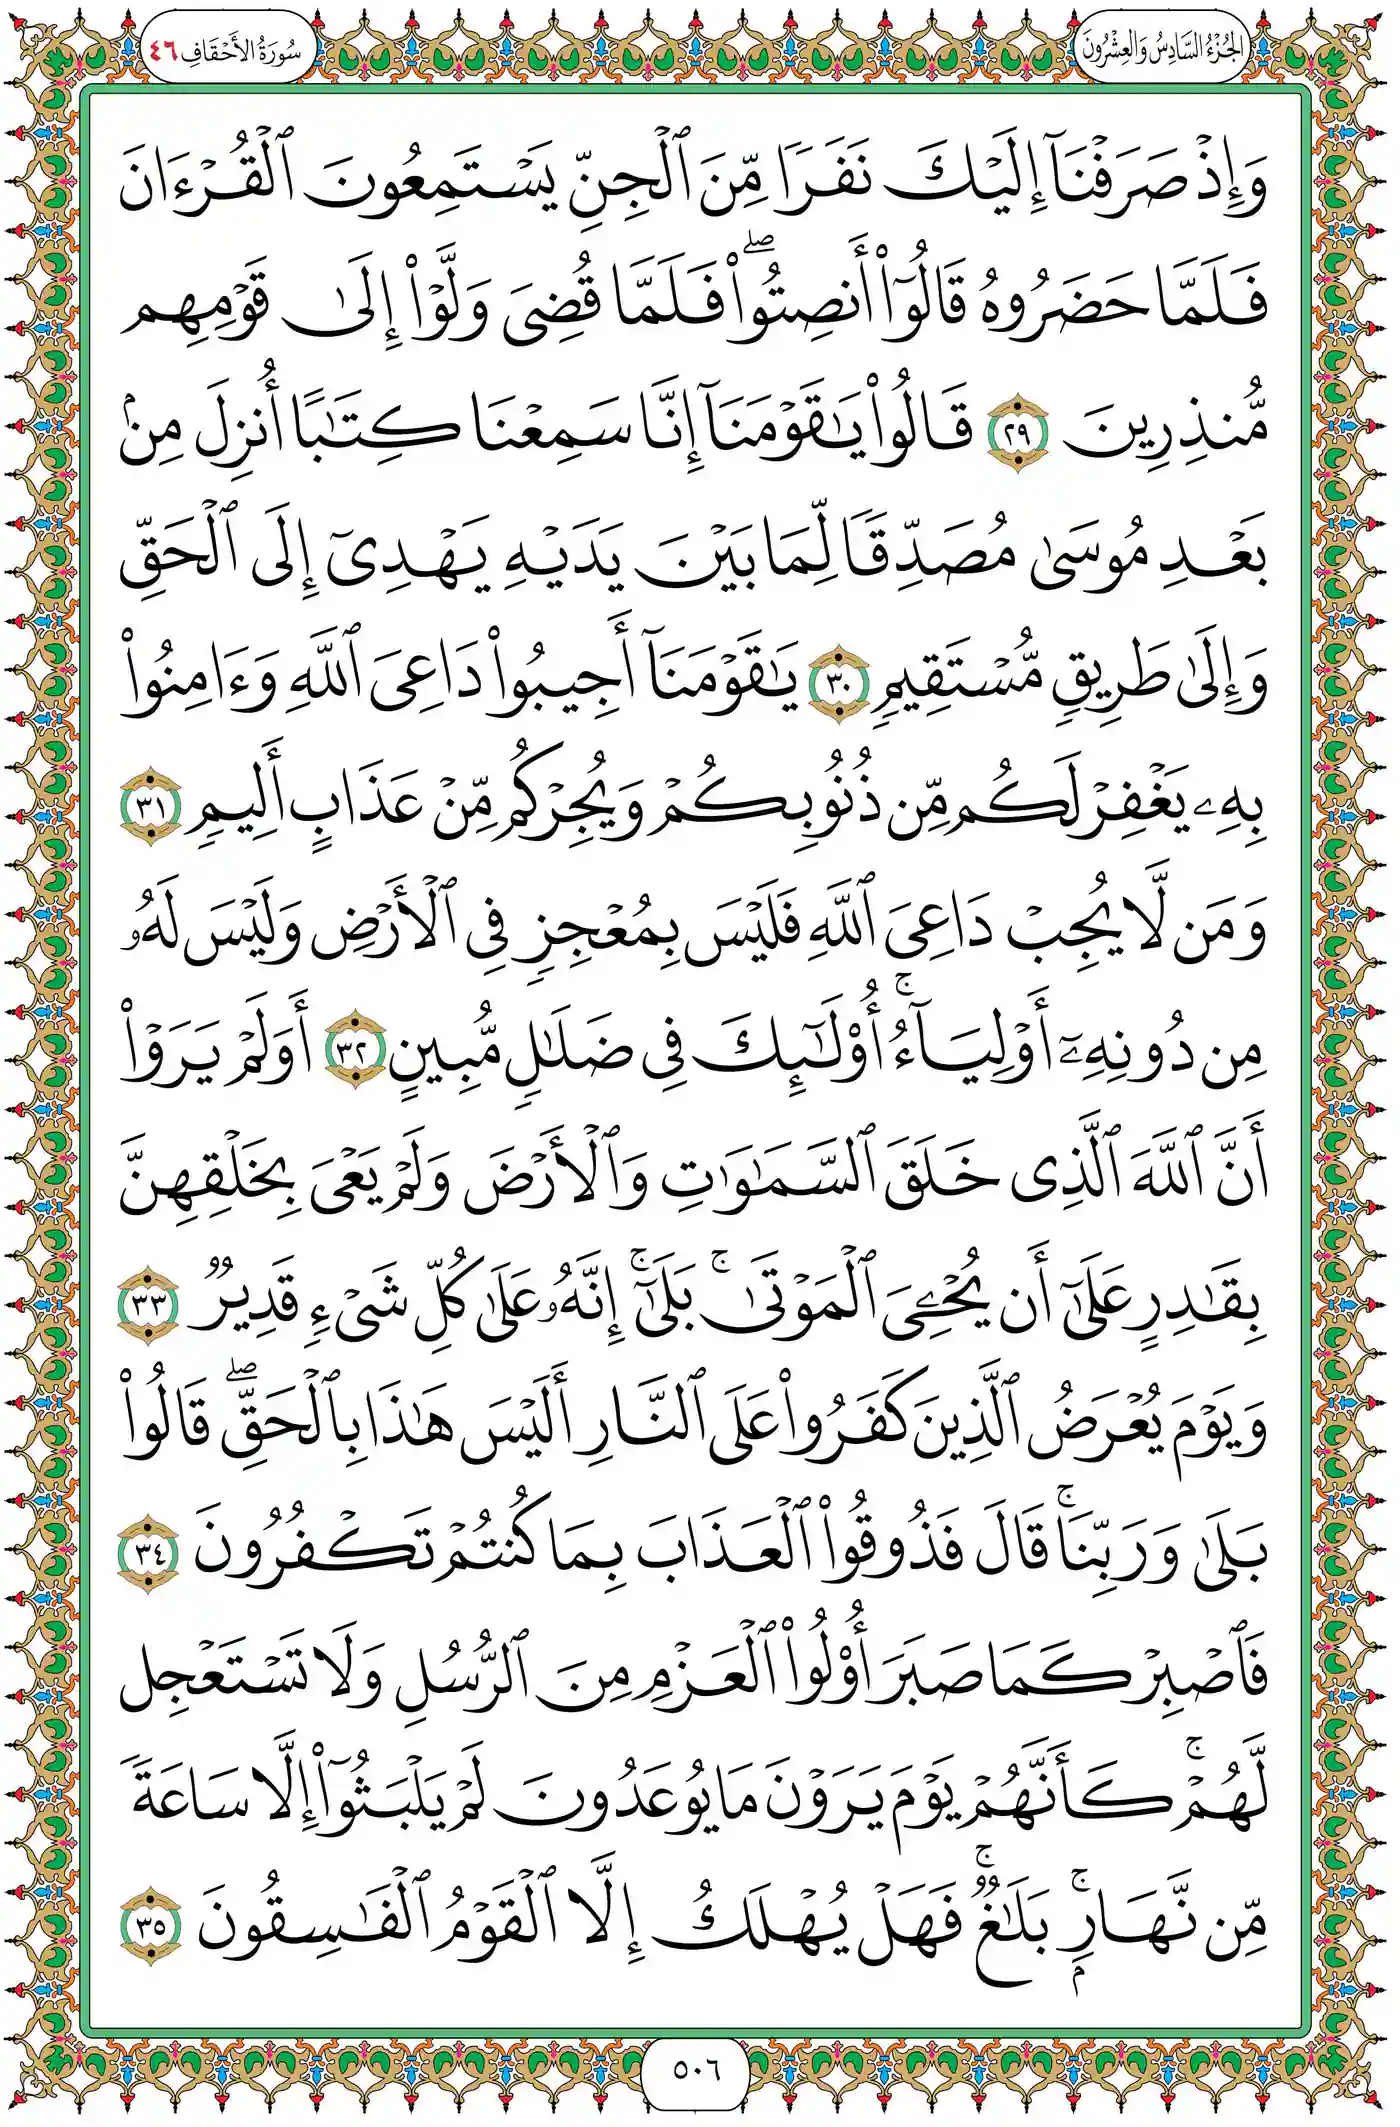 الجُزْءُ السَّادِسُ وَالعِشْرُونَ
سُورَةُ الأَحْقَافِ ٤٦
وَإِذْ صَرَفْنَآ إِلَيْكَ نَفَرًا مِّنَ ٱلْجِنِّ يَسْتَمِعُونَ ٱلْقُرْءَانَ
فَلَمَّا حَضَرُوهُ قَالُوٓا۟ أَنصِتُوا۟ۖ فَلَمَّا قُضِىَ وَلَّوْا۟ إِلَىٰ قَوْمِهِم
مُّنذِرِينَ ٢٩ قَالُوا۟ يَـٰقَوْمَنَآ إِنَّا سَمِعْنَا كِتَـٰبًا أُنزِلَ مِنۢ
بَعْدِ مُوسَىٰ مُصَدِّقًا لِّمَا بَيْنَ يَدَيْهِ يَهْدِىٓ إِلَى ٱلْحَقِّ
وَإِلَىٰ طَرِيقٍ مُّسْتَقِيمٍ ٣٠ يَـٰقَوْمَنَآ أَجِيبُوا۟ دَاعِىَ ٱللَّهِ وَءَامِنُوا۟
بِهِۦ يَغْفِرْ لَكُم مِّن ذُنُوبِكُمْ وَيُجِرْكُم مِّنْ عَذَابٍ أَلِيمٍ ٣١
وَمَن لَّا يُجِبْ دَاعِىَ ٱللَّهِ فَلَيْسَ بِمُعْجِزٍ فِى ٱلْأَرْضِ وَلَيْسَ لَهُۥ
مِن دُونِهِۦٓ أَوْلِيَآءُۚ أُو۟لَـٰٓئِكَ فِى ضَلَـٰلٍ مُّبِينٍ ٣٢ أَوَلَمْ يَرَوْا۟
أَنَّ ٱللَّهَ ٱلَّذِى خَلَقَ ٱلسَّمَـٰوَٰتِ وَٱلْأَرْضَ وَلَمْ يَعْىَ بِخَلْقِهِنَّ
بِقَـٰدِرٍ عَلَىٰٓ أَن يُحْـِۧىَ ٱلْمَوْتَىٰۚ بَلَىٰٓۚ إِنَّهُۥ عَلَىٰ كُلِّ شَىْءٍ قَدِيرٌ ٣٣
وَيَوْمَ يُعْرَضُ ٱلَّذِينَ كَفَرُوا۟ عَلَى ٱلنَّارِ أَلَيْسَ هَـٰذَا بِٱلْحَقِّۖ قَالُوا۟
بَلَىٰ وَرَبِّنَاۚ قَالَ فَذُوقُوا۟ ٱلْعَذَابَ بِمَا كُنتُمْ تَكْفُرُونَ ٣٤
فَٱصْبِرْ كَمَا صَبَرَ أُو۟لُوا۟ ٱلْعَزْمِ مِنَ ٱلرُّسُلِ وَلَا تَسْتَعْجِل
لَّهُمْۚ كَأَنَّهُمْ يَوْمَ يَرَوْنَ مَا يُوعَدُونَ لَمْ يَلْبَثُوٓا۟ إِلَّا سَاعَةً
مِّن نَّهَارٍۭۚ بَلَـٰغٌۚ فَهَلْ يُهْلَكُ إِلَّا ٱلْقَوْمُ ٱلْفَـٰسِقُونَ ٣٥
٥٠٦